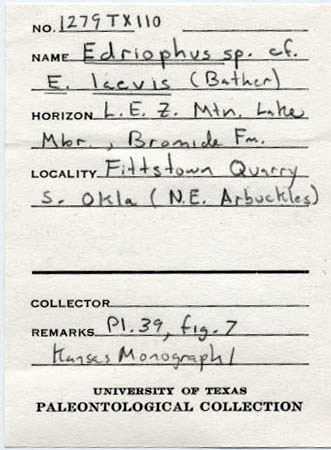 NO. 1279TX110
NAME Edriophus sp. cf.
E. laevis (Bather)
HORIZON L.E.Z. Mtn. Lake
Mbr., Bromide Fm.
LOCALITY Fittstown Quarry
S. Okla (N.E. Arbuckles)
COLLECTOR
REMARKS Pl. 39, fig. 7
Kansas Monograph 1
UNIVERSITY OF TEXAS
PALEONTOLOGICAL COLLECTION